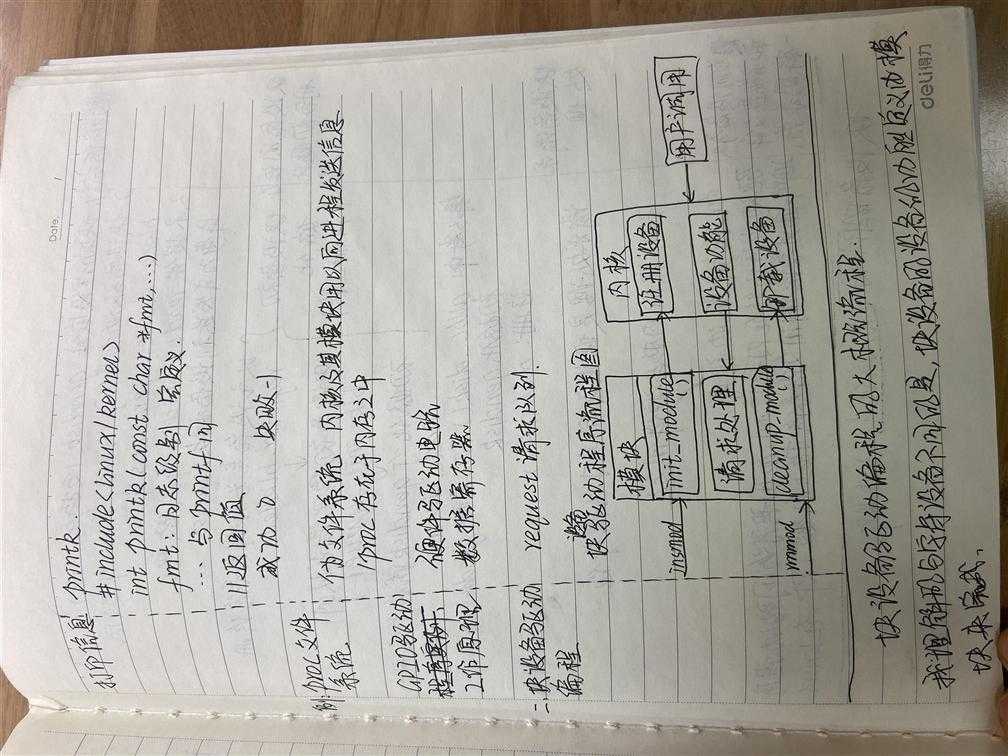 Date.
打印信息 printk.
#include<linux/kernel>
int printk(const char *fmt,...)
fmt:日志级别 宏定义.
... 与printf同
//返回值
成功 0 失败-1
例:proc文件系统.
伪文件系统 内核及其模块用以向进程发送信息.
/proc 存在于内存之中
GPIO驱动
工作原理.
硬件驱动电路
数据寄存器.
二.块设备驱动编程.
request 请求队列.
块设备驱动程序流程图
insmod
rmmod
模块
init_module()
请求处理
cleanup_module()
内核
注册设备
设备功能
卸载设备
用户调用
块设备驱动编程,可大概流程.
我理解的与字符设备不同就是,块设备的设备公功能自定义由模
块来完成.
deli得力